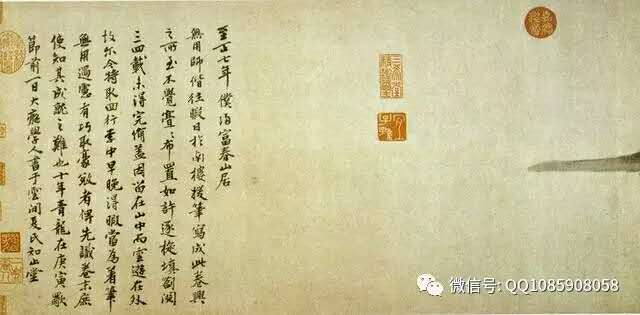 至正七年僕歸富春山居
無用師偕往暇日於南樓援筆寫成此卷興
之所至不覺亹亹布置如許逐旋填劄閱
三四載未得完備蓋因留在山中而雲遊在外
故尔今特取回行李中早晚得暇當為着筆
無用過慮有巧取豪敚者俾先識卷末庶
使知其成就之難也十年青龍在庚寅歜
節前一日大癡學人書于雲間夏氏知止堂
三希堂精鑑璽
宜子孫
微信号: QQ1085908058